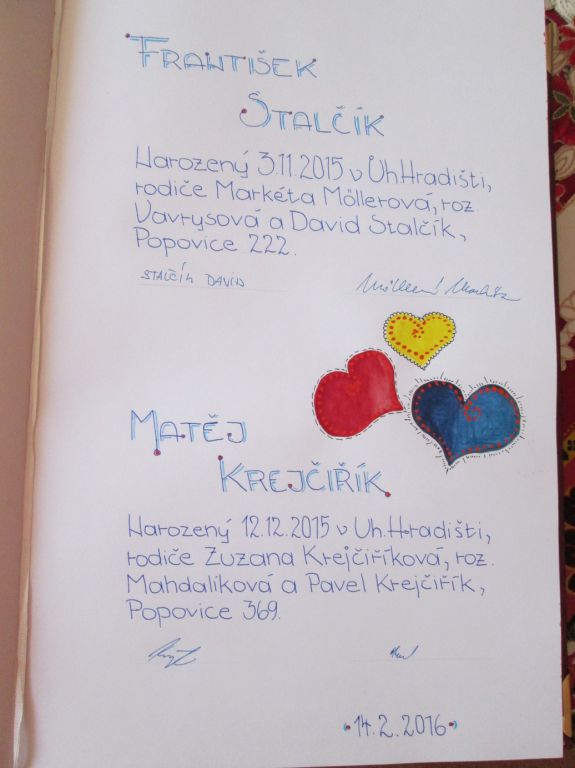 František
Stalčík
Narozený 3.11.2015 v Uh.Hradišti,
rodiče Markéta Möllerová, roz.
Vavrysová a David Stalčík,
Popovice 222.
STALČÍK DAVID
Matěj
Krejčiřík
Narozený 12.12.2015 v Uh.Hradišti,
rodiče Zuzana Krejčiříková, roz.
Mahdalíková a Pavel Krejčiřík,
Popovice 369.
14.2.2016